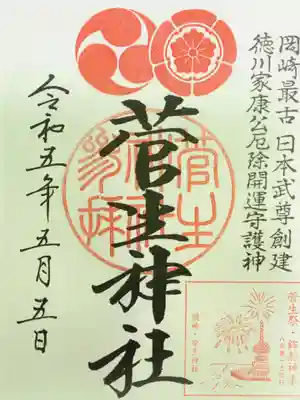 岡崎最古 日本武尊創建
徳川家康公厄除開運守護神
菅生神社
令和五年五月五日
菅生祭・鉾船神事
岡崎・菅生神社